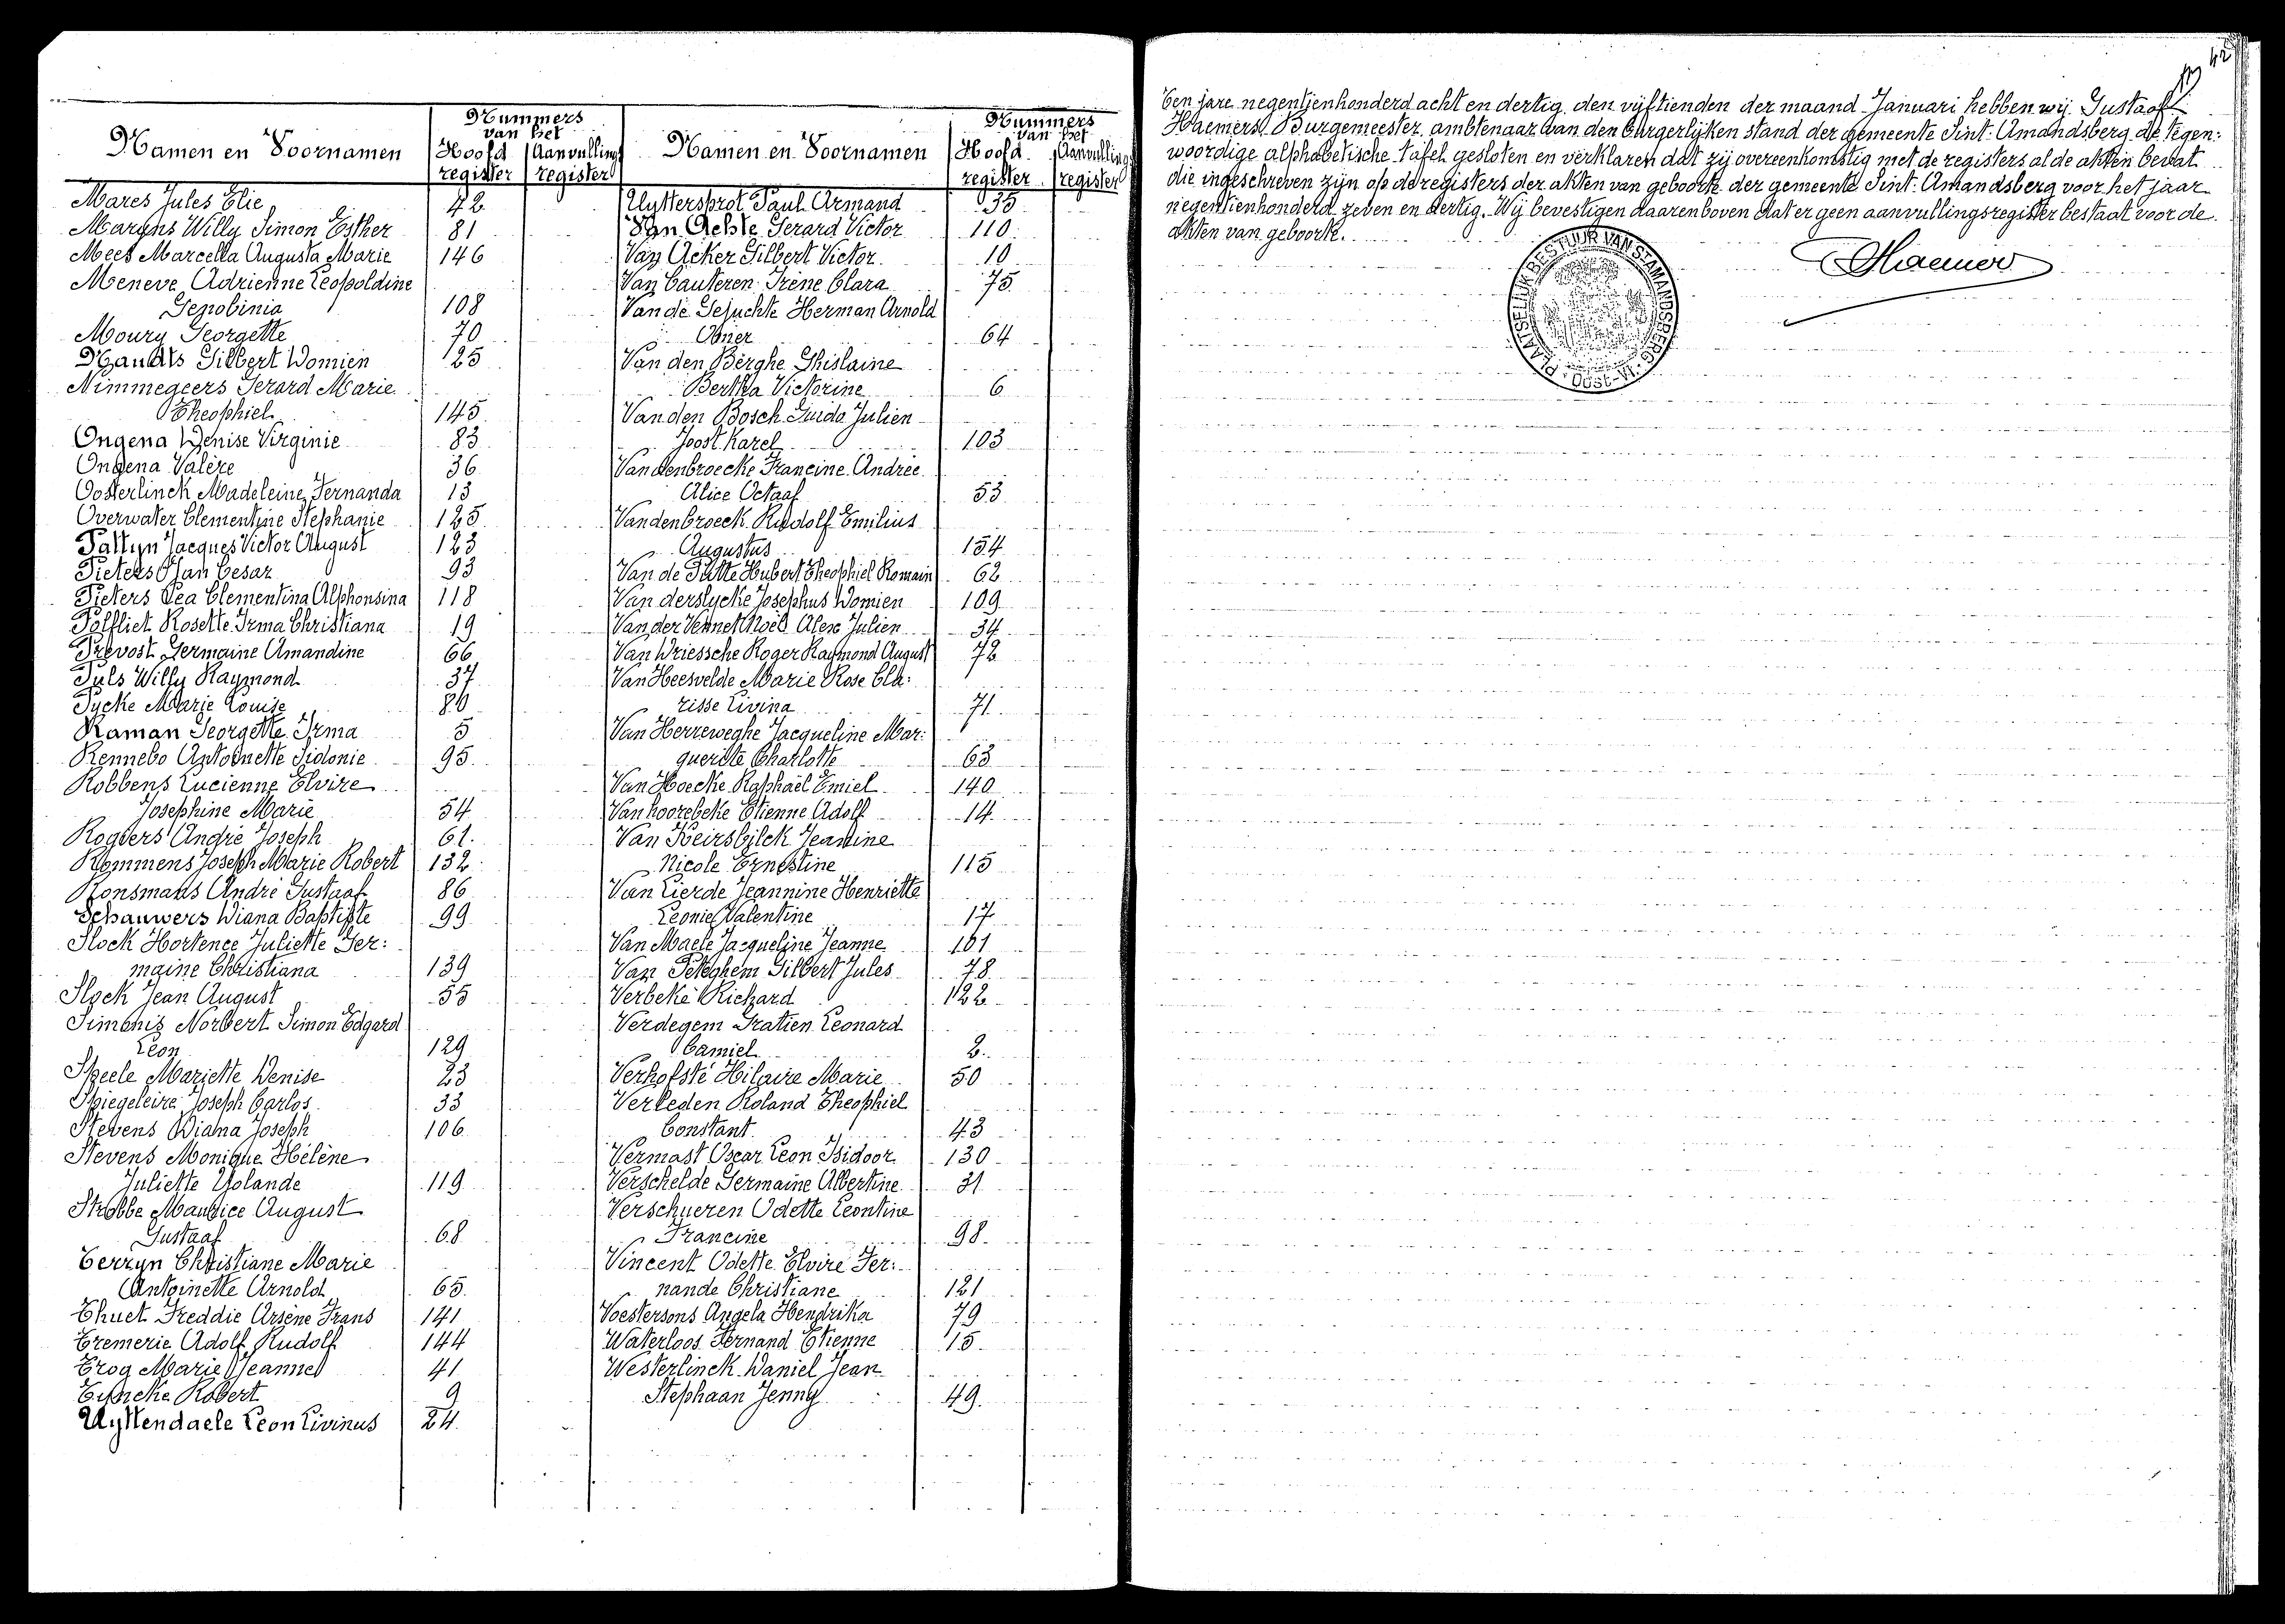 42
Namen en Voornamen
Nummers
van het
Hoofd register
Aanvulling register
Mares Jules Elie 42
Martens Willy Simon Esther 81
Mees Marcella Augusta Marie 146
Meneve Adrienne Leopoldine
Zenobinia 108
Moury Georgette 70
Nandts Gilbert Domien 125
Nimmegeers Gerard Marie
Theophiel 145
Ongena Denise Virginie 83
Ongena Valère 36
Oosterlinck Madeleine Fernanda 13
Overwater Clementine Stephanie 125
Pattyn Jacques Victor August 123
Pieters Jan Cesar 93
Pieters Lea Clementina Alphonsina 118
Polfliet Rosette Irma Christiana 19
Prevost Germaine Amandine 66
Puls Willy Raymond 37
Pycke Marie Louise
Raman Georgette Irma 5
Rennebo Antoinette Sidonie 95
Robbens Lucienne Elvire
Josephine Marie 54
Rogiers André Joseph 61
Rommens Joseph Marie Robert 132
Ronsmans André Gustaaf 86
Schauwers Diana Baptiste 99
Slock Hortence Juliette Ger:
maine Christiana 139
Slock Jean August 55
Simonis Norbert Simon Edgard
Leon 129
Speele Mariette Denise 23
Spiegeleire Joseph Carlos 33
Stevens Diana Joseph 106
Stevens Monique Hélène
Juliette Yolande 119
Strobbe Maurice August
Gustaaf 68
Terryn Christiane Marie
Antoinette Arnold 65
Thuet Freddie Arsène Frans 141
Tremerie Adolf Rudolf 144
Trog Marie Jeanne 41
Tyncke Robert 9
Uyttendaele Leon Livinus 24
Namen en Voornamen
Nummers
van het
Hoofd register
Aanvulling register
Uyttersprot Paul Armand 35
Van Achte Gerard Victor 110
Van Acker Gilbert Victor 10
Van Cauteren Irène Clara 75
Van de Gejuchte Herman Arnold
Abner 64
Van den Berghe Ghislaine
Bertha Victorine 6
Van den Bosch Guido Julien
Joost Karel 103
Vandenbroecke Francine Andrée
Alice Octaaf 53
Vandenbroeck Rudolf Emilius
Augustus 154
Van de Putte Hubert Theophiel Romain 62
Van derslycke Josephus Domien 109
Van der Vennet Noël Alex Julien 34
Van Driessche Roger Raymond August 72
Van Heesvelde Marie Rose Cla:
risse Livina 71
Van Herreweghe Jacqueline Mar:
guerite Charlotte 63
Van Hoecke Raphaël Emiel 140
Vanhoorebeke Etienne Adolf 14
Van Keirsbilck Jeanine
Nicole Ernestine 115
Van Lierde Jeannine Henriette
Leonie Valentine 17
Van Maele Jacqueline Jeanne 101
Van Peteghem Gilbert Jules 78
Verbeke Richard 122
Verdegem Gratien Leonard
Camiel 2
Verhofsté Hilaire Marie 50
Verleden Roland Theophiel
Constant 43
Vermast Oscar Leon Isidoor 130
Verschelde Germaine Albertine 31
Verschueren Odette Leontine
Francine 98
Vincent Odette Elvire Fer:
nande Christiane 121
Voestersons Angela Hendrika 79
Waterloos Fernand Etienne 15
Westerlinck Daniel Jean
Stephaan Jenny 49
Ten jare negentienhonderd acht en dertig den vijftienden der maand Januari hebben wij Gustaaf
Haemers Burgemeester ambtenaar van den burgerlijken stand der gemeente Sint-Amandsberg de tegen:
woordige alphabetische tafel gesloten en verklaren dat zij overeenkomstig met de registers al de akten bevat
die ingeschreven zijn op de registers der akten van geboorte der gemeente Sint-Amandsberg voor het jaar
negentienhonderd zeven en dertig. Wij bevestigen daarenboven dat er geen aanvullingsregister bestaat voor de
akten van geboorte.
PLAATSELIJK BESTUUR VAN ST AMANDSBERG
OOST-VL.
Haemers